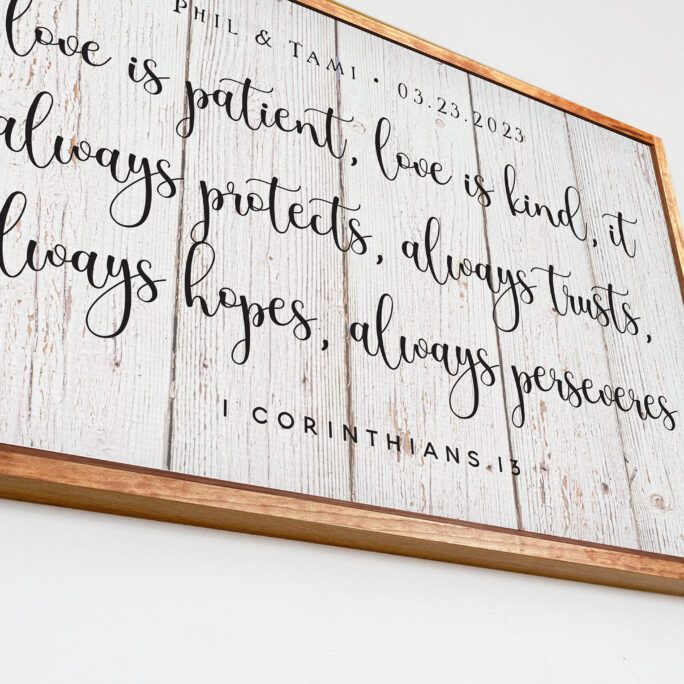 PHIL & TAMI • 03.23.2023
love is patient, love is kind, it
always protects, always trusts,
always hopes, always perseveres
I CORINTHIANS 13